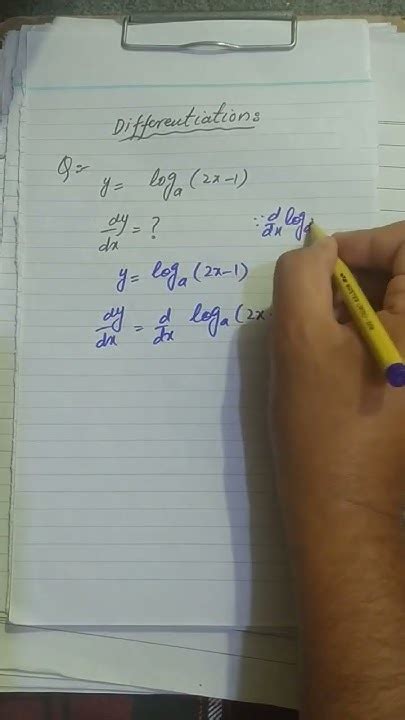 Differentiations
Q:-
y = logₐ (2x-1)
dy/dx = ?
∵ d/dx log
y = logₐ (2x-1)
dy/dx = d/dx logₐ (2x